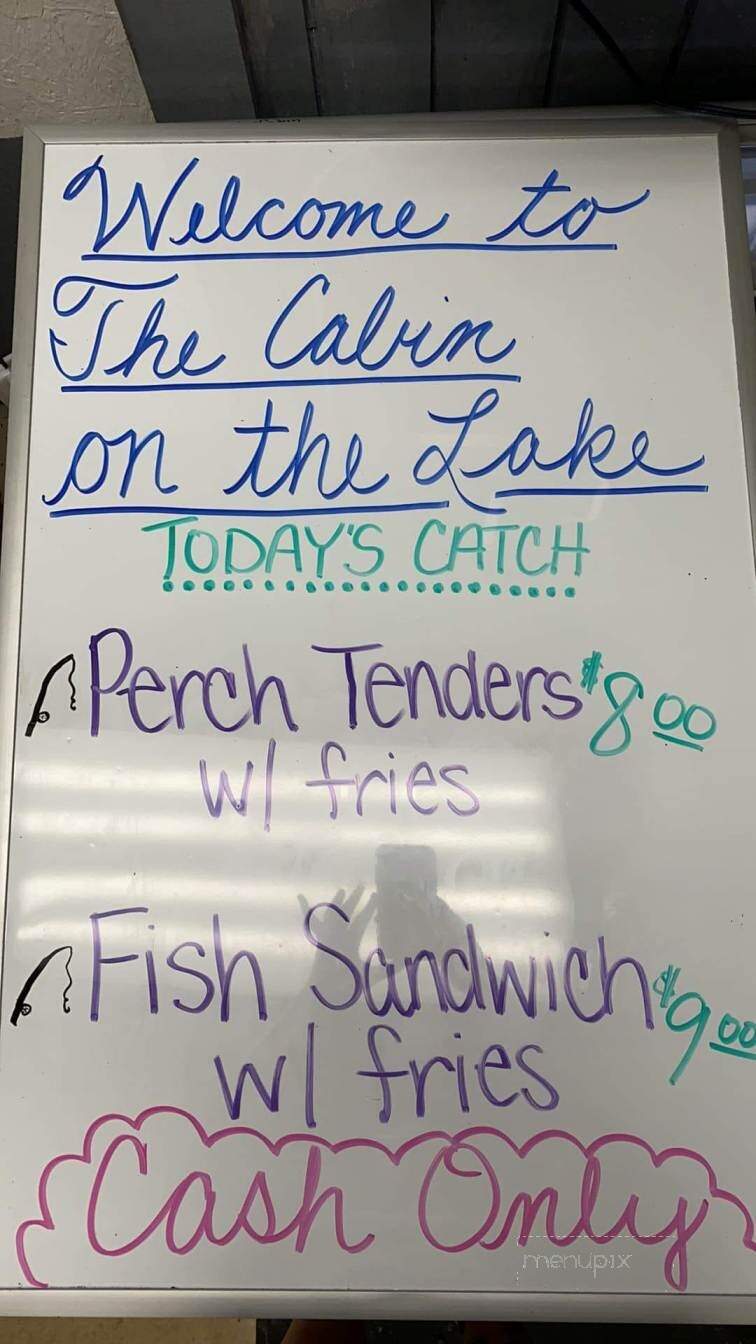 Welcome to
The Cabin
on the Lake
TODAY'S CATCH
Perch Tenders $8.00
w/ fries
Fish Sandwich $9.00
w/ fries
Cash Only
menupix